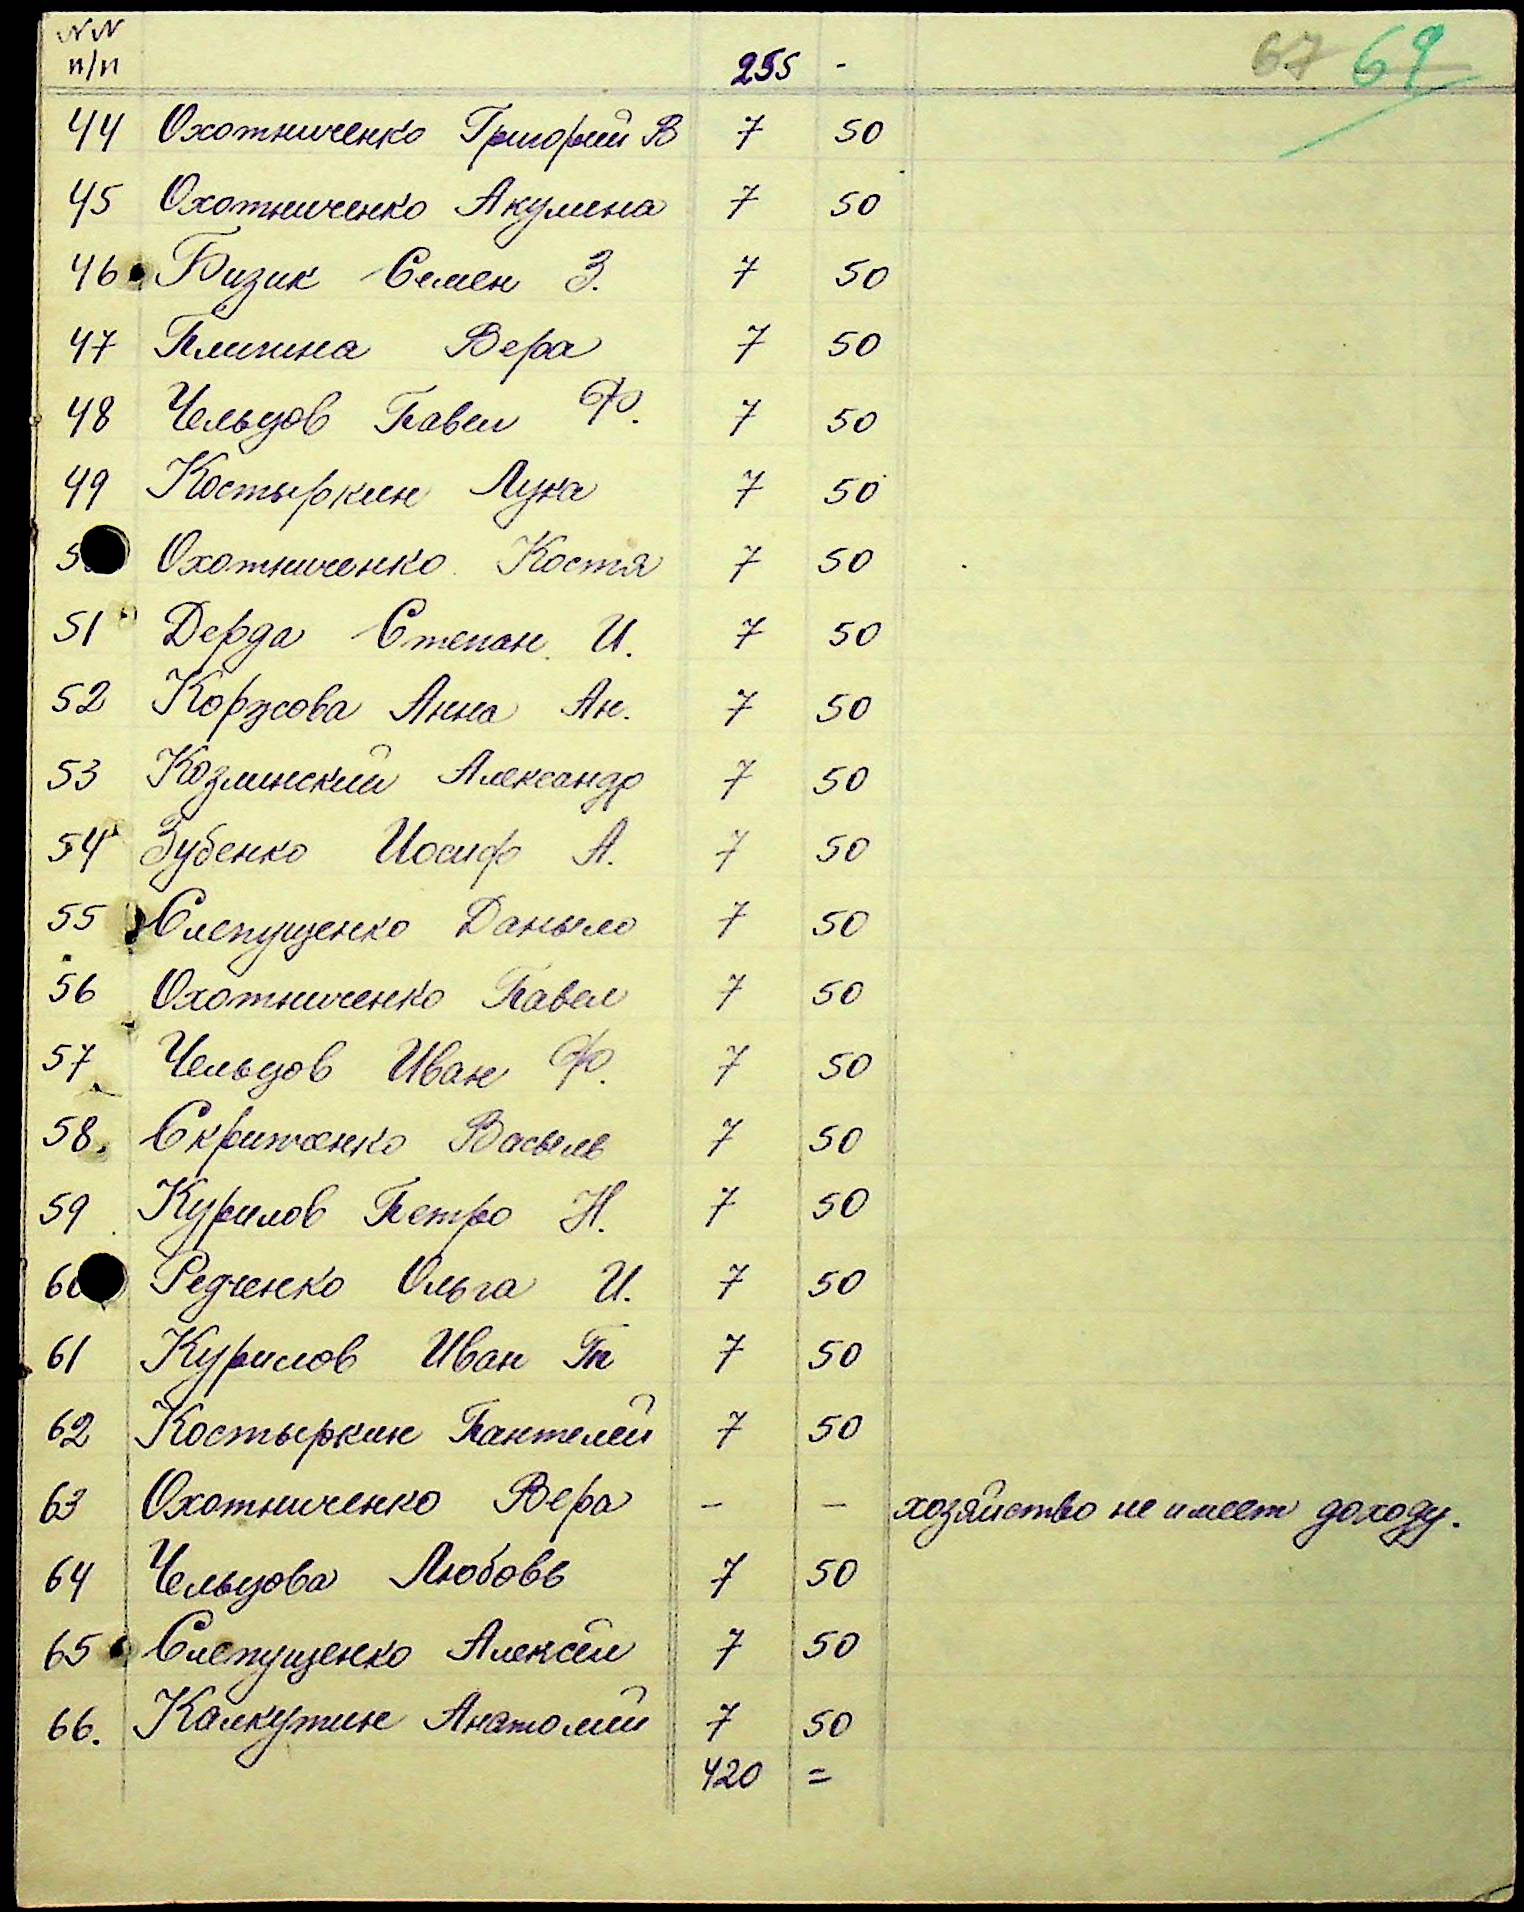 NN
п/п 255 - 67 69
44 Охотниченко Григорий В 7 50
45 Охотниченко Акулина 7 50
46 Бизик Семен З. 7 50
47 Плигина Вера 7 50
48 Чельцов Павел Ф. 7 50
49 Костыркин Лука 7 50
5 Охотниченко Костя 7 50
51 Дерда Степан И. 7 50
52 Коржова Анна Ан. 7 50
53 Козлинский Александр 7 50
54 Зубенко Иосиф А. 7 50
55 Слепущенко Даныло 7 50
56 Охотниченко Павел 7 50
57 Чельцов Иван Ф. 7 50
58. Васыль 7 50
59 Курилов Петро Н. 7 50
60 Редченко Ольга И. 7 50
61 Курилов Иван Гп 7 50
62 Костыркин Пантелей 7 50
63 Охотниченко Вера - - хозяйство не имеет доходу.
64 Чельцова Любовь 7 50
65 Слепущенко Алексей 7 50
66. Калкутин Анатолий 7 50
420 =